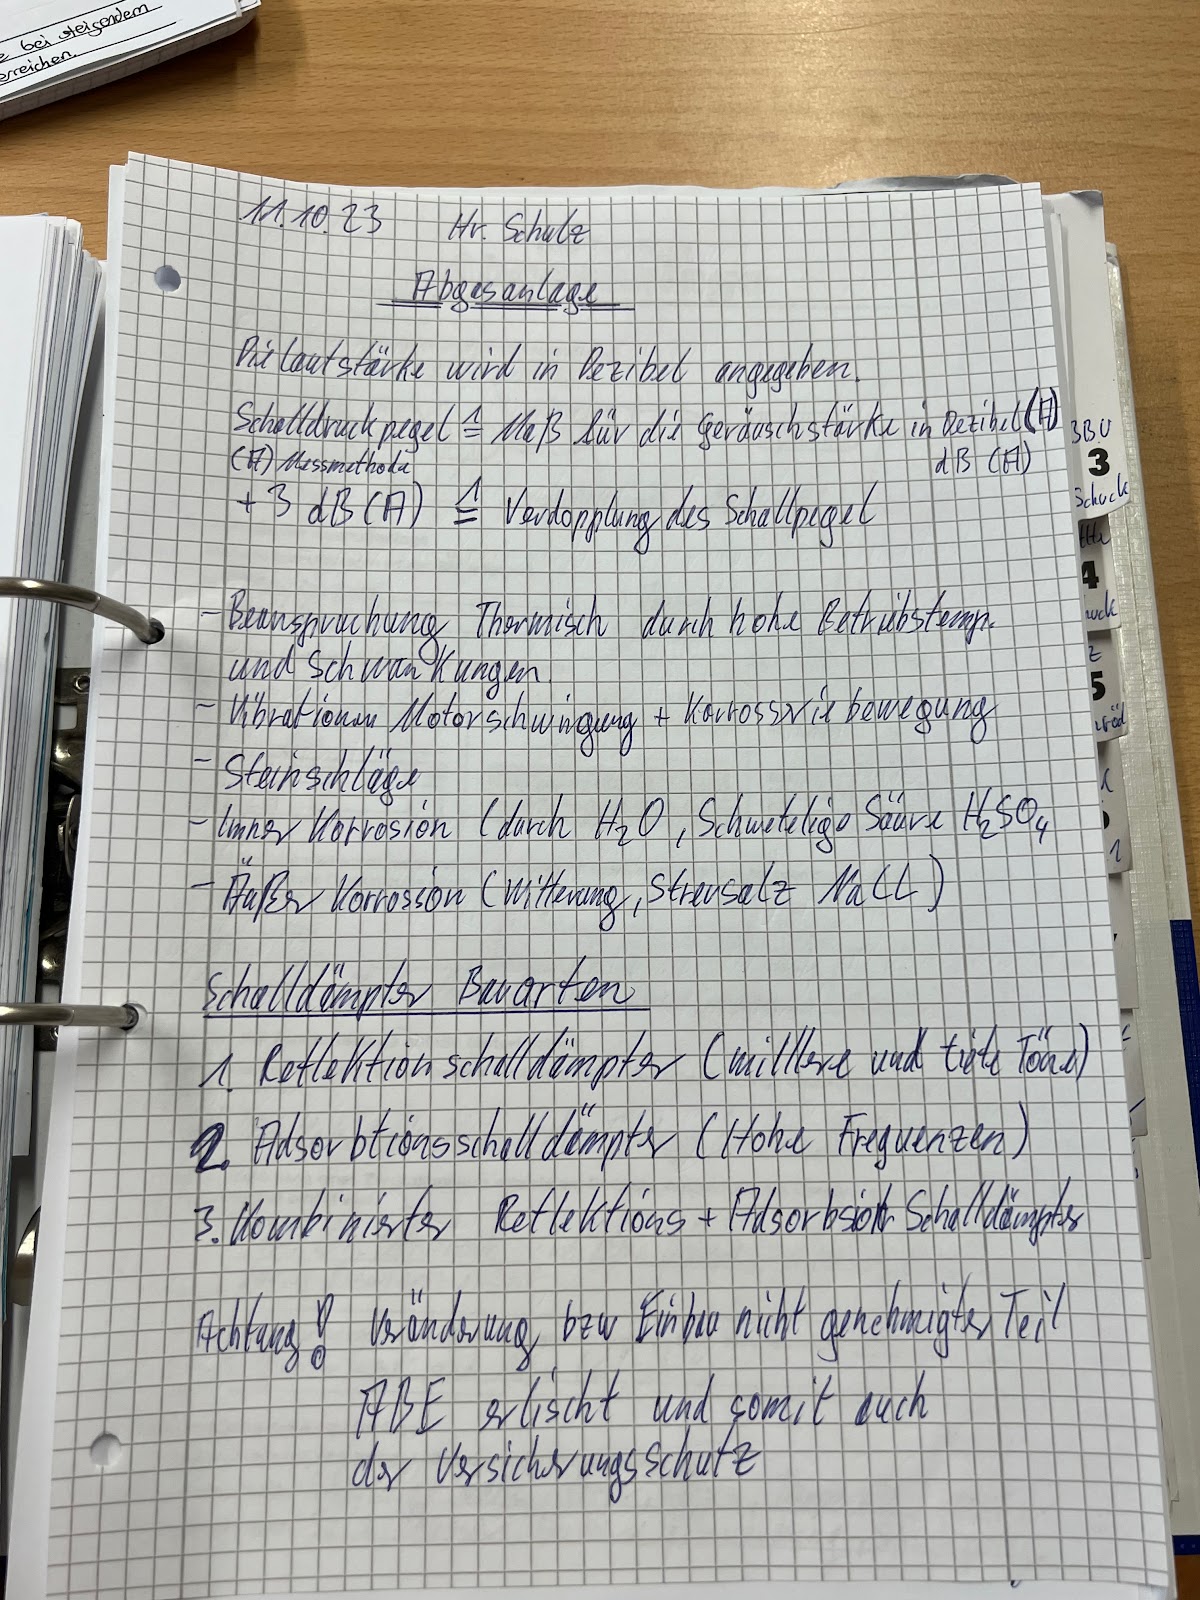 e bei steigendem
erreichen.
11.10.23 Hr. Schulz
Abgasanlage
Die Lautstärke wird in Dezibel angegeben.
Schalldruckpegel ≙ Maß für die Geräuschstärke in Dezibel (A)
(A) Messmethode dB (A)
+ 3 dB (A) ≙ Verdopplung des Schallpegel
- Beanspruchung Thermisch durch hohe Betriebstemp.
und Schwankungen.
- Vibrationen Motorschwingung + Karrosserie bewegung
- Steinschläge
- Inner Korrosion (durch H₂O, Schwefelige Säure H₂SO₄
- Äußer Korrosion (Witterung, Streusalz NaCL)
Schalldämpfer Bauarten
1. Reflektionschalldämpfer (mittlere und tiefe Töne)
2. Adsorbtionsschalldämpfer (Hohe Frequenzen)
3. Kombinierter Reflektions + Adsorbsion Schalldämpfer
Achtung! Veränderung bzw Einbau nicht genehmigter Teil
ABE erlischt und somit auch
der Versicherungsschutz
BBU
3
Schuck
4
5